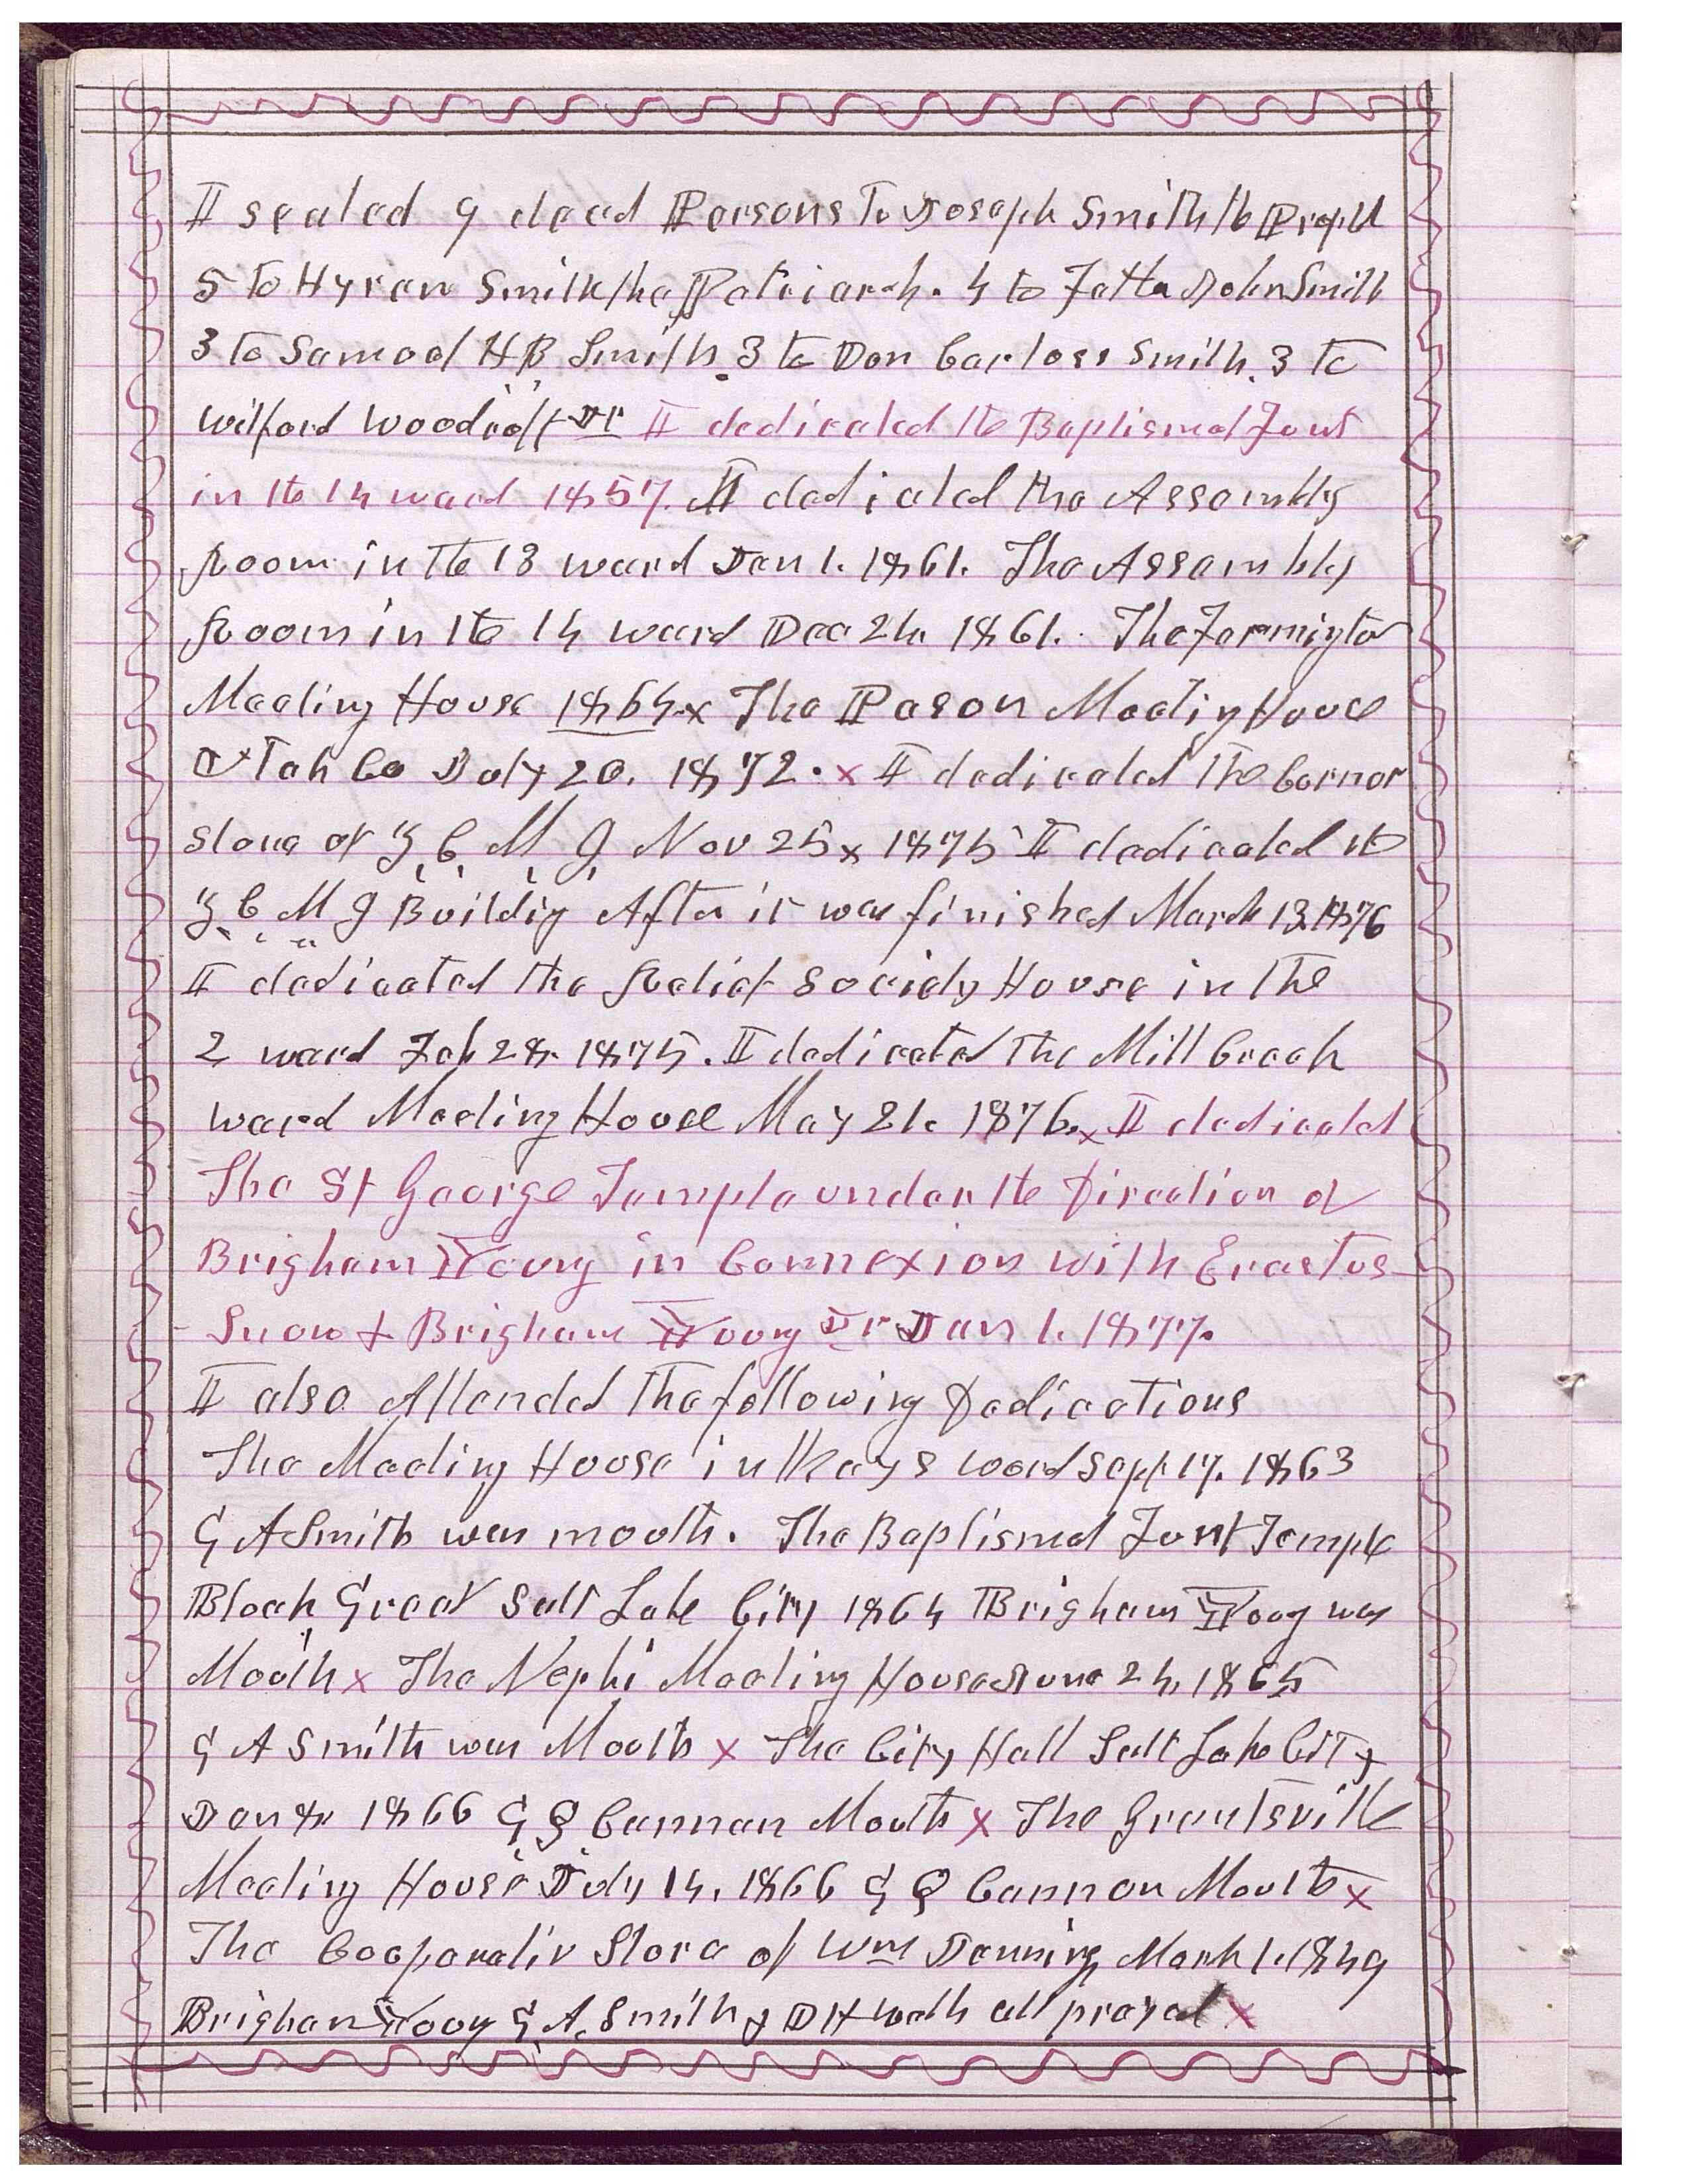 I sealed 9 dead Persons To Joseph Smith the Prophet
5 To Hyram Smith the Patriarch. 4 to Father John Smith
3 To Samuel H B Smith. 3 to Don Carloss Smith. 3 to
Wilford Woodruff Jr I dedicated the Baptismal Font
in the 14 ward 1857. I dedicated the Assembly
Room in the 13 ward Jan 1. 1861. The Assembly
Room in the 14 ward Dec 24. 1861. The Farmington
Meeting House 1864 x The Pason Meeting House
Utah Co July 20. 1872. x I dedicated The Corner
Stone of Z C M I Nov 25 x 1875 I dedicated the
Z C M I Buildig After it was finished March 13. 1876
I dedicated the Relief Society House in the
2 ward Feb 28. 1875. I dedicated the Mill Creek
ward Meeting House May 21. 1876. x I dedicated
The St George Temple under the Direction of
Brigham Young in Connexion with Erastus
Snow & Brigham Young Jr Jan 1. 1877.
I also Attended the following Dedications
The Meeting House in Kays ward Sept 17. 1863
G A Smith was mouth. The Baptismal Font Temple
Block Great Salt Lake City 1864 Brigham Young was
Mouth x The Nephi Meeting House June 24. 1865
G A Smith was Mouth x The City Hall Salt Lake City
Jan 8. 1866 G Q Cannon Mouth x The Grantsville
Meeting House July 14. 1866 G Q Cannon Mouth x
The Cooperativ Store of Wm Jenning March 1. 1849
Brigham Young G. A. Smith & D H Wells all prayed x